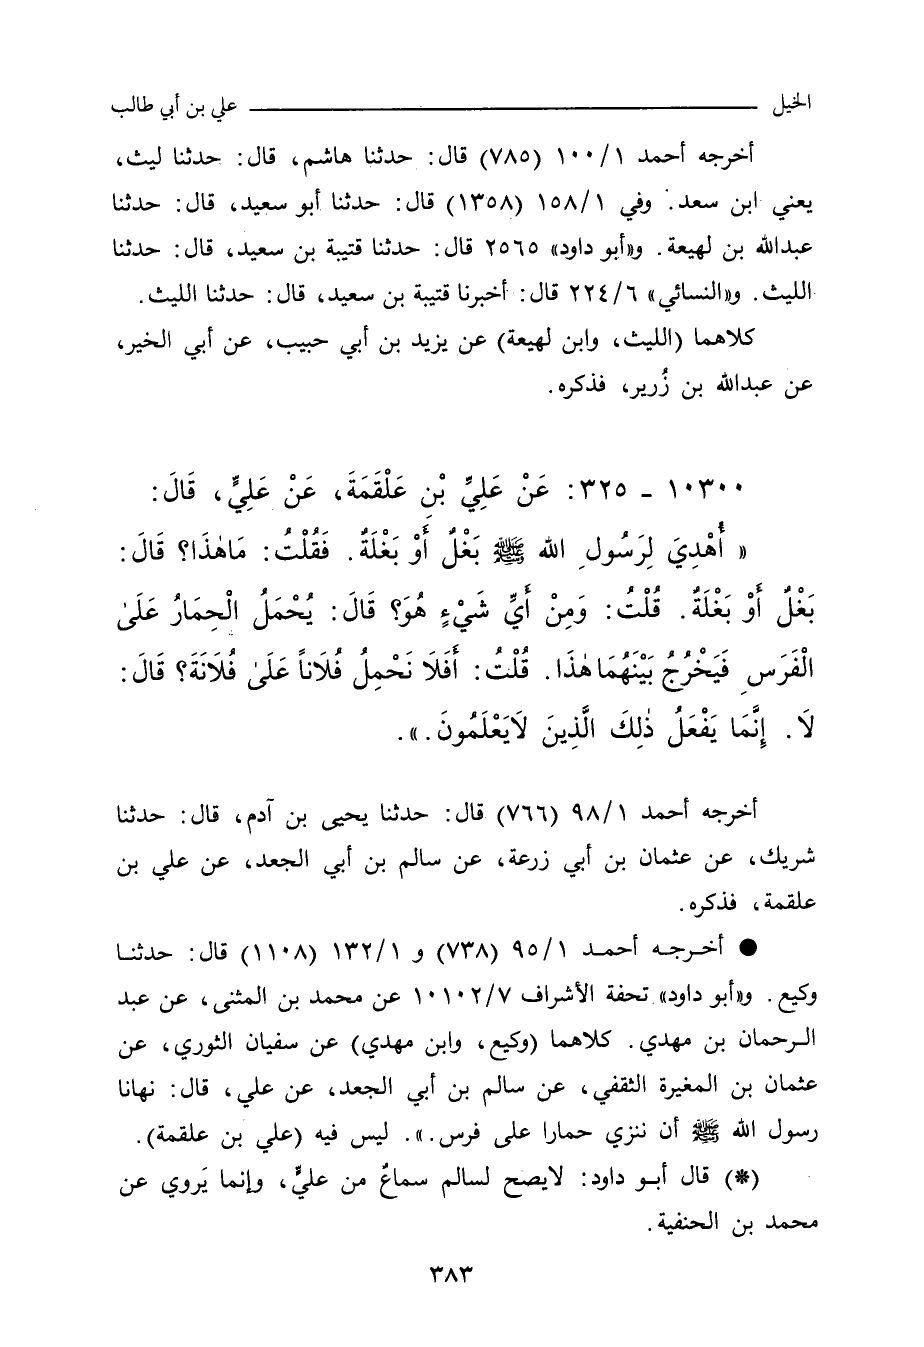 الخيل ــــــــــ علي بن أبي طالب
أخرجه أحمد ١/ ١٠٠ (٧٨٥) قال: حدثنا هاشم، قال: حدثنا ليث،
يعني ابن سعد. وفي ١/ ١٥٨ (١٣٥٨) قال: حدثنا أبو سعيد، قال: حدثنا
عبدالله بن لهيعة. و«أبو داود» ٢٥٦٥ قال: حدثنا قتيبة بن سعيد، قال: حدثنا
الليث. و«النسائي» ٦/ ٢٢٤ قال: أخبرنا قتيبة بن سعيد، قال: حدثنا الليث.
كلاهما (الليث، وابن لهيعة) عن يزيد بن أبي حبيب، عن أبي الخير،
عن عبدالله بن زُرير، فذكره.
١٠٣٠٠ - ٣٢٥: عَنْ عَلِيِّ بْنِ عَلْقَمَةَ، عَنْ عَلِيٍّ، قَالَ:
« أُهْدِيَ لِرَسُولِ اللهِ ﷺ بَغْلٌ أَوْ بَغْلَةٌ. فَقُلْتُ: مَاهٰذَا؟ قَالَ:
بَغْلٌ أَوْ بَغْلَةٌ. قُلْتُ: وَمِنْ أَيِّ شَيْءٍ هُوَ؟ قَالَ: يُحْمَلُ الْحِمَارُ عَلَىٰ
الْفَرَسِ فَيَخْرُجُ بَيْنَهُمَا هٰذَا. قُلْتُ: أَفَلَا نَحْمِلُ فُلَاناً عَلَىٰ فُلَانَةَ؟ قَالَ:
لَا. إِنَّمَا يَفْعَلُ ذٰلِكَ الَّذِينَ لَايَعْلَمُونَ.».
أخرجه أحمد ١/ ٩٨ (٧٦٦) قال: حدثنا يحيى بن آدم، قال: حدثنا
شريك، عن عثمان بن أبي زرعة، عن سالم بن أبي الجعد، عن علي بن
علقمة، فذكره.
● أخرجه أحمد ١/ ٩٥ (٧٣٨) و ١/ ١٣٢ (١١٠٨) قال: حدثنا
وكيع. و«أبو داود» تحفة الأشراف ٧/ ١٠١٠٢ عن محمد بن المثنى، عن عبد
الرحمان بن مهدي. كلاهما (وكيع، وابن مهدي) عن سفيان الثوري، عن
عثمان بن المغيرة الثقفي، عن سالم بن أبي الجعد، عن علي، قال: نهانا
رسول الله ﷺ أن ننزي حمارا على فرس.». ليس فيه (علي بن علقمة).
(*) قال أبو داود: لايصح لسالم سماعٌ من عليٍّ، وإنما يَروي عن
محمد بن الحنفية.
٣٨٣